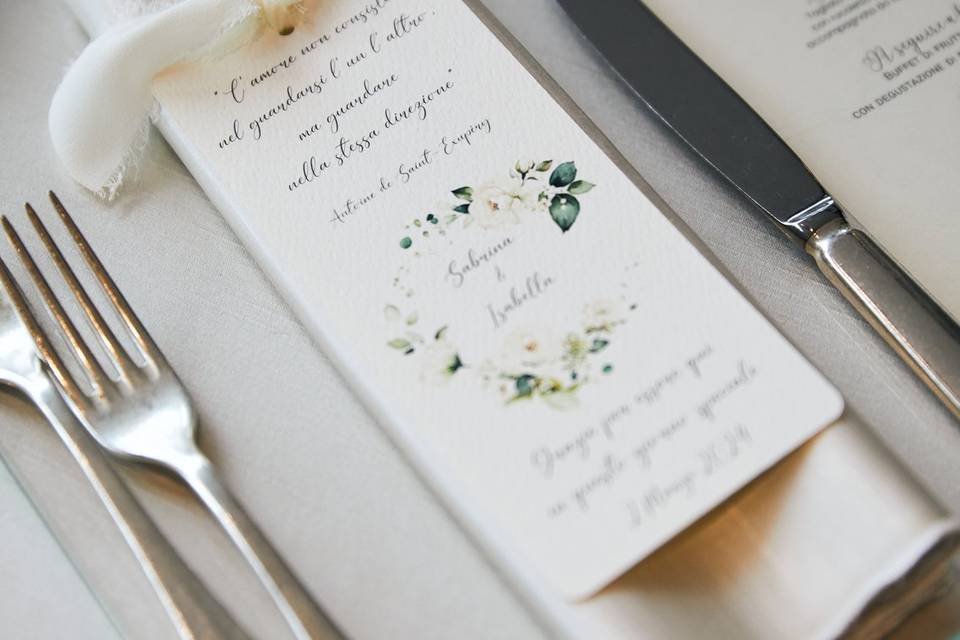 "L'amore non consiste
nel guardarsi l'un l'altro,
ma guardare
nella stessa direzione"
Antoine de Saint-Exupéry
Sabrina
&
Isabella
Grazie per essere qui
in questo giorno speciale
2024
accompagnato da
A seguire
BUFFET DI FRUTT
CON DEGUSTAZIONE DI